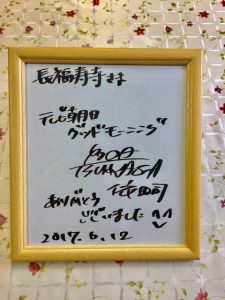 長福寿寺さま
テレビ朝日
グッドモーニング
ありがとう
ございました^^
2017.6.12